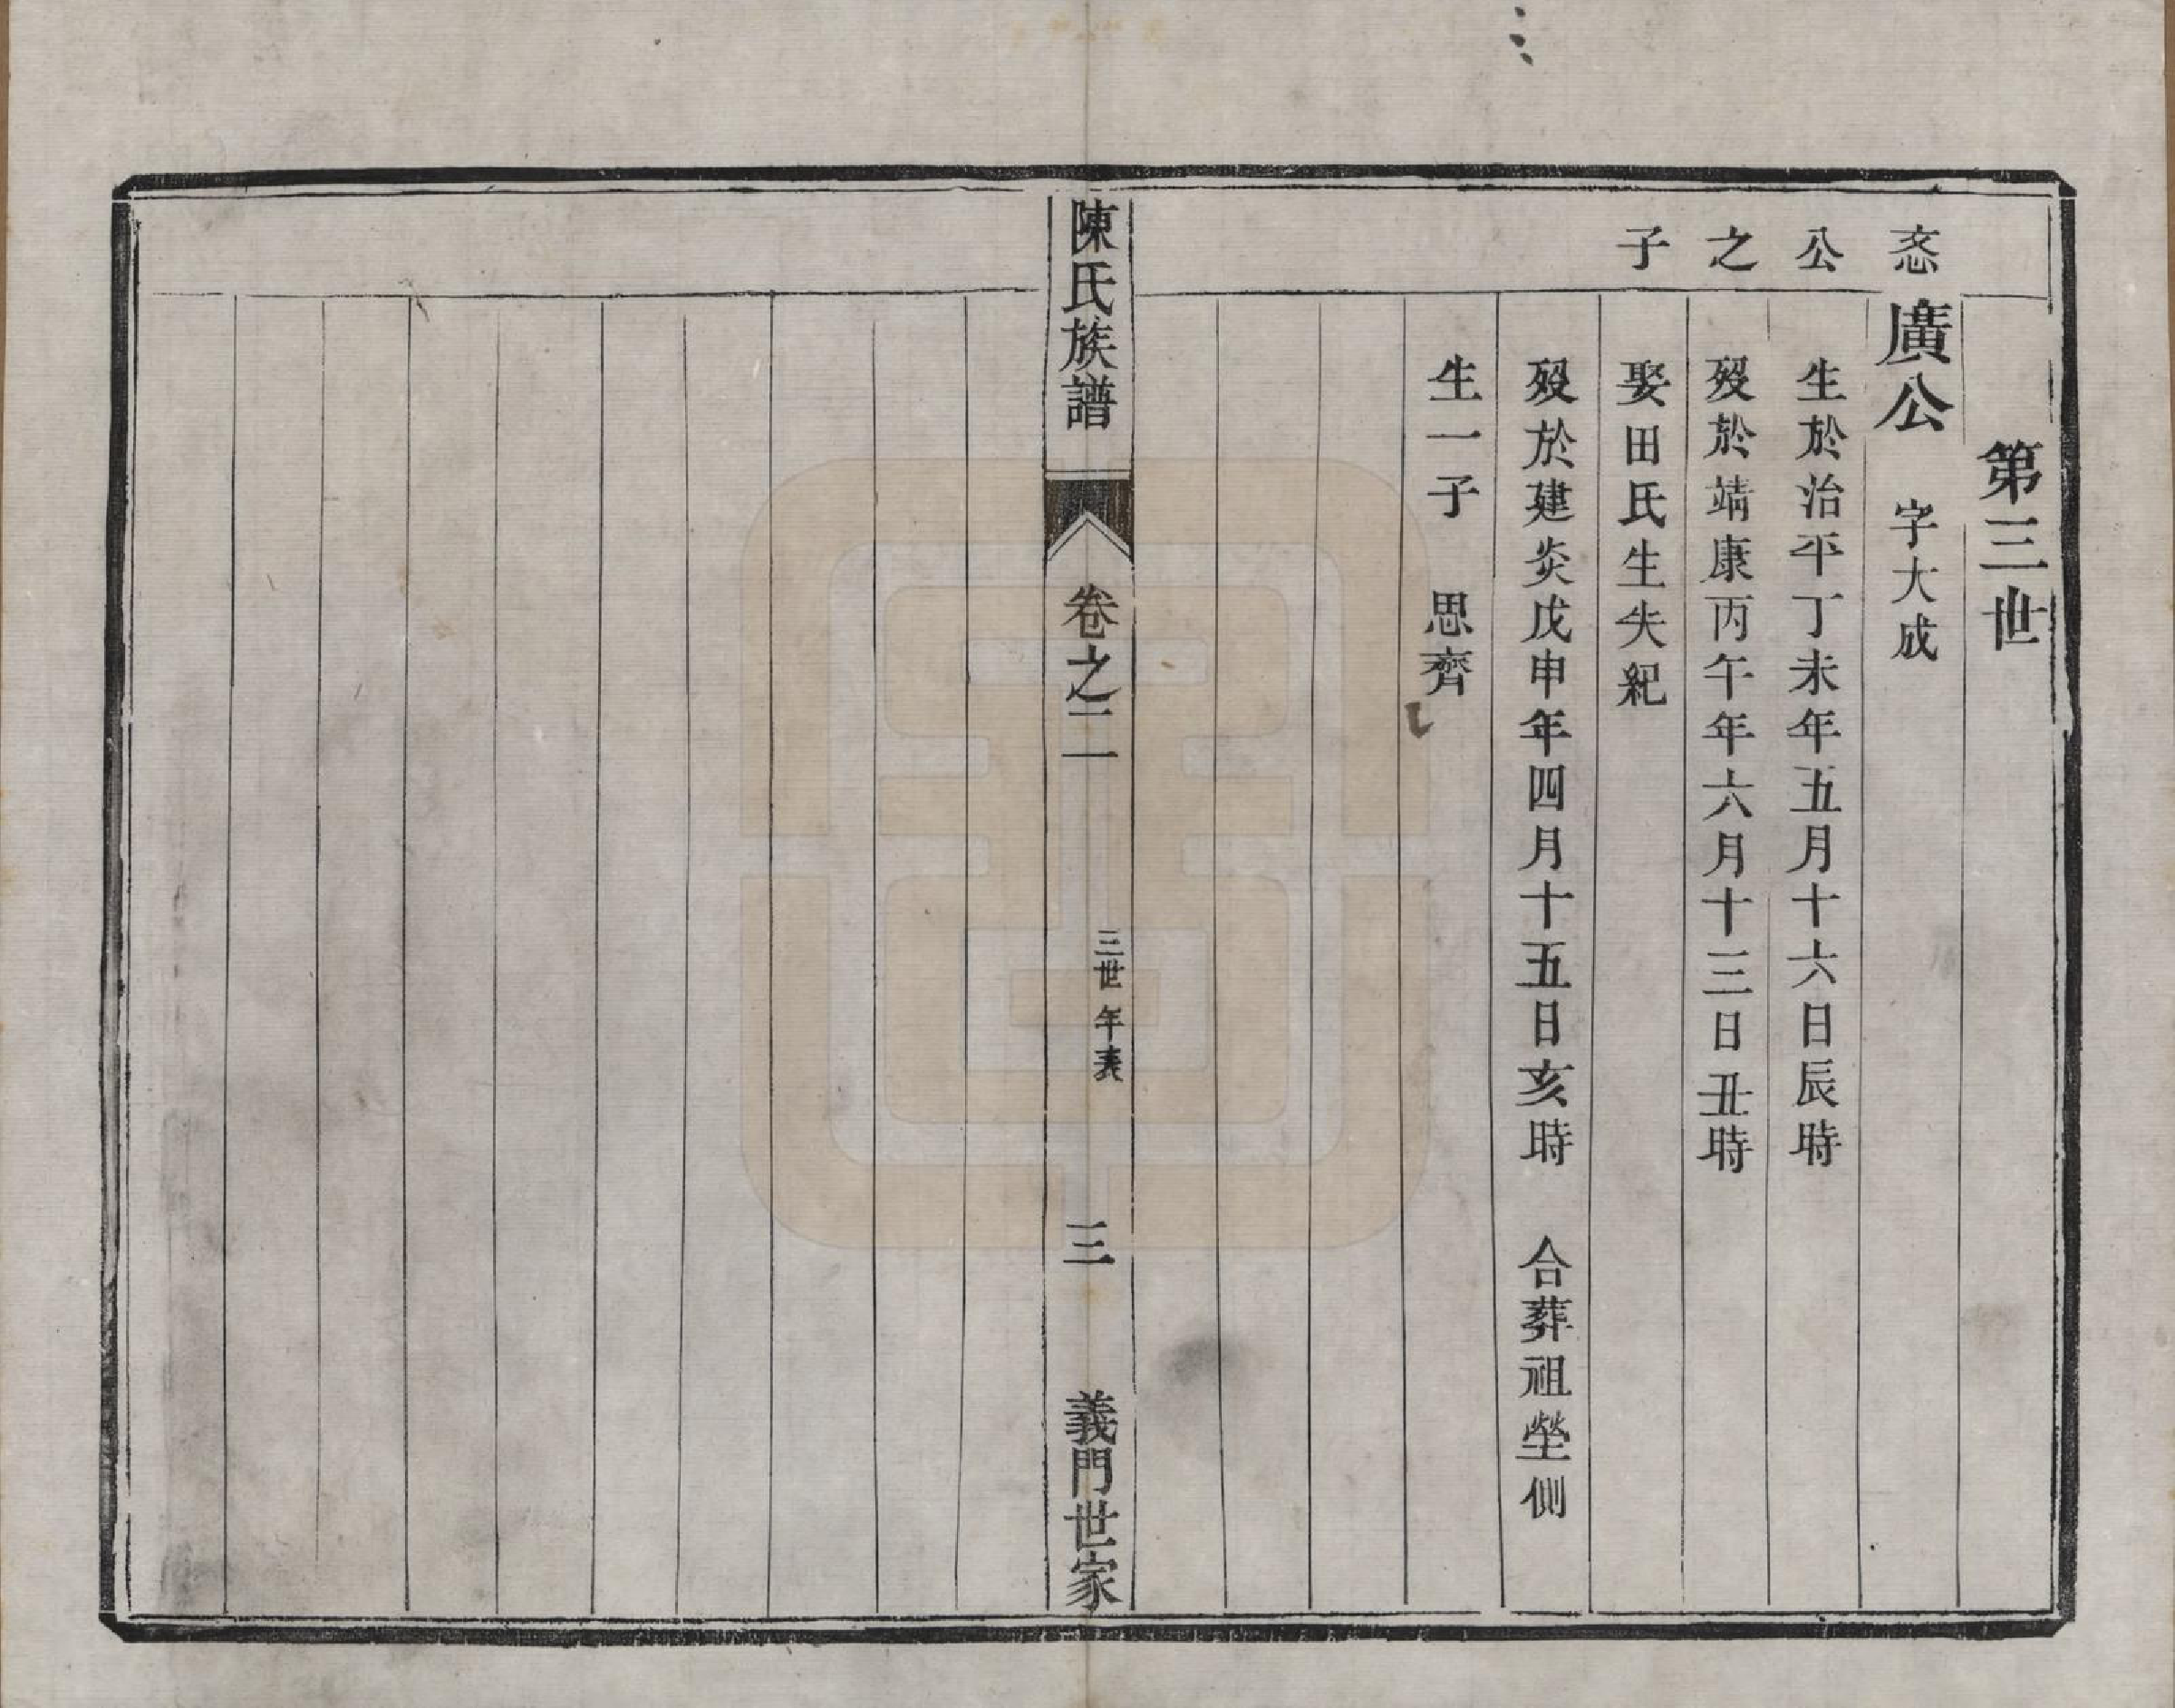 第三世
忞公之子
廣公 字大成
生於治平丁未年五月十六日辰時
歿於靖康丙午年六月十三日丑時
娶田氏生失紀
歿於建炎戊申年四月十五日亥時 合葬祖塋側
生一子 思齊
陳氏族譜 卷之二 三世年表 三 義門世家